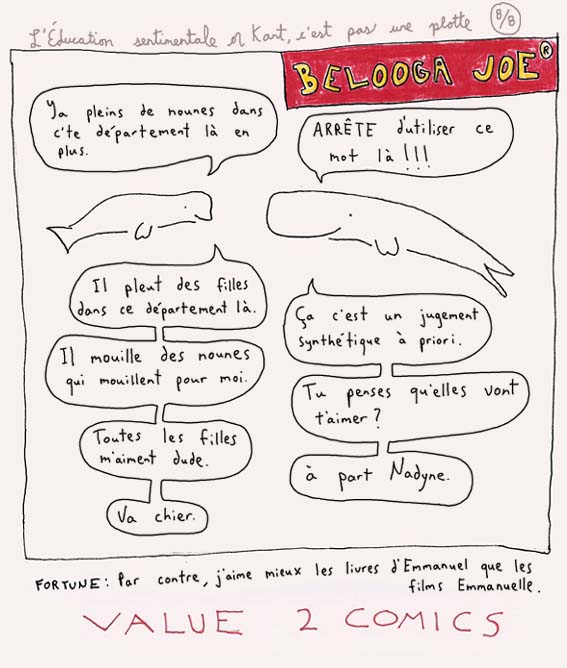 L'Éducation sentimentale of Kant, c'est pas une plotte 8/8
BELOOGA JOE®
Ya pleins de nounes dans
c'te département là en
plus.
ARRÊTE d'utiliser ce
mot là!!!
Il pleut des filles
dans ce département là.
Il mouille des nounes
qui mouillent pour moi.
Toutes les filles
m'aiment dude.
Va chier.
Ça c'est un jugement
synthétique à priori.
Tu penses qu'elles vont
t'aimer?
à part Nadyne.
FORTUNE: Par contre, j'aime mieux les livres d'Emmanuel que les
films Emmanuelle.
VALUE 2 COMICS